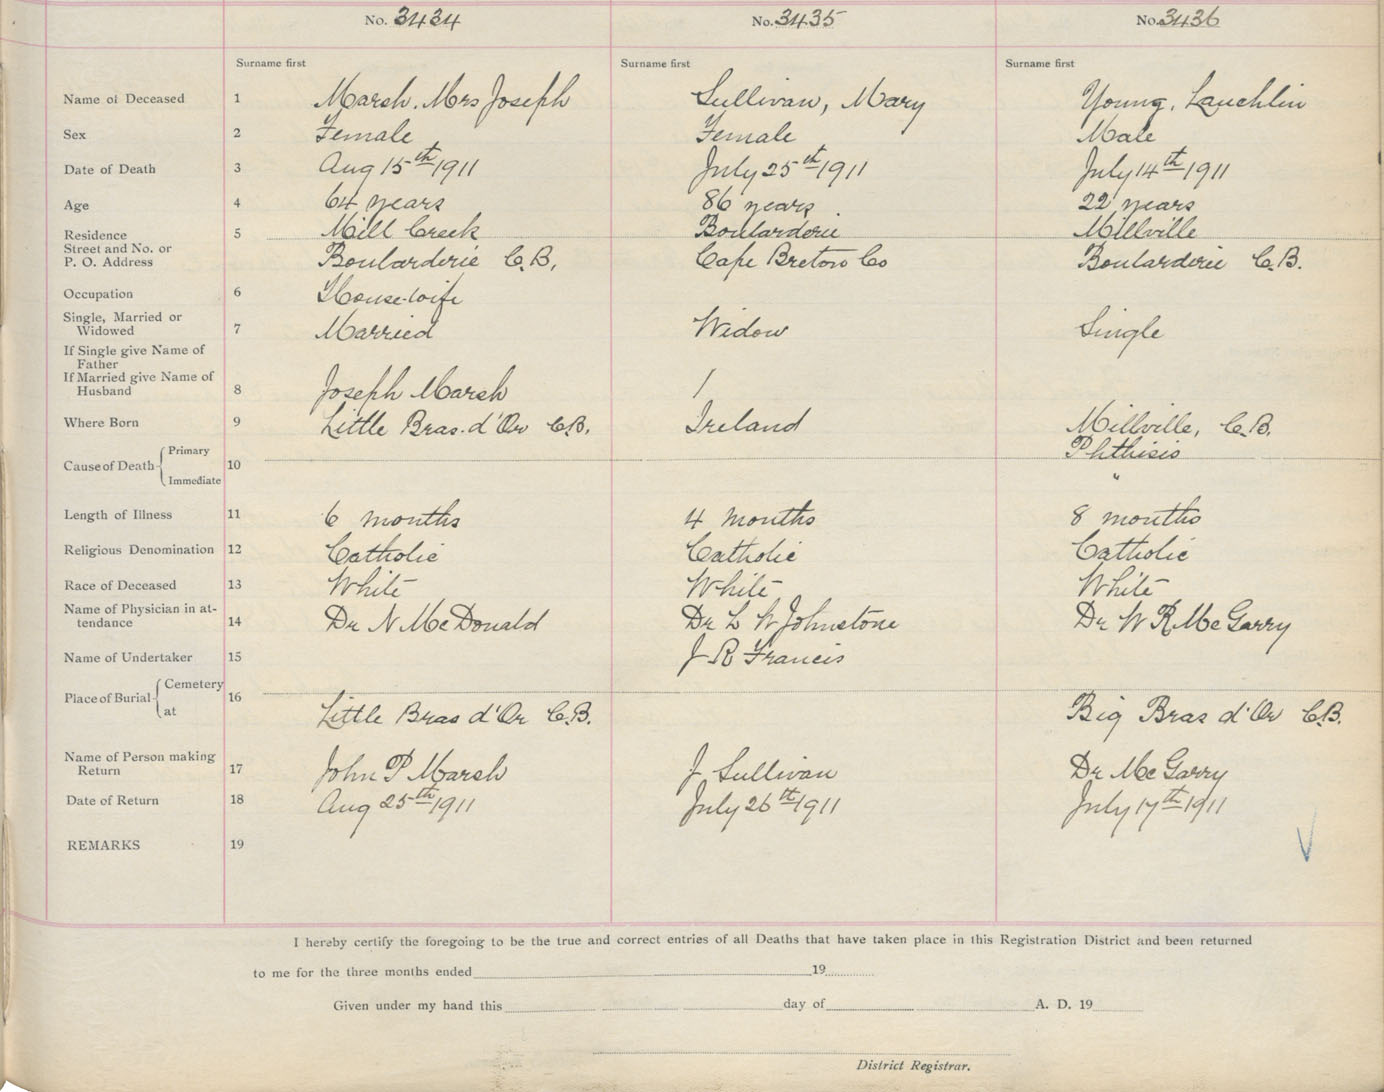 No. 3434 No. 3435 No. 3436
Surname first Surname first Surname first
Name of Deceased 1 Marsh, Mrs Joseph Sullivan, Mary Young, Lauchlin
Sex 2 Female Female Male
Date of Death 3 Aug 15th 1911 July 25th 1911 July 14th 1911
Age 4 64 years 86 years 22 years
Residence 5 Mill Creek Boularderie Millville
Street and No. or
P. O. Address Boularderie C.B. Cape Breton Co Boularderie C.B.
Occupation 6 House-wife
Single, Married or
Widowed 7 Married Widow Single
If Single give Name of
Father
If Married give Name of
Husband 8 Joseph Marsh /
Where Born 9 Little Bras-d'Or C.B. Ireland Millville, C.B.
Cause of Death { Primary Phthisis
10
Immediate "
Length of Illness 11 6 months 4 months 8 months
Religious Denomination 12 Catholic Catholic Catholic
Race of Deceased 13 White White White
Name of Physician in at-
tendance 14 Dr N McDonald Dr L W Johnstone Dr W R McGarry
Name of Undertaker 15 J R Francis
Place of Burial { Cemetery 16
at Little Bras d'Or C.B. Big Bras d'Or C.B.
Name of Person making
Return 17 John P Marsh J Sullivan Dr McGarry
Date of Return 18 Aug 25th 1911 July 26th 1911 July 17th 1911
REMARKS 19
I hereby certify the foregoing to be the true and correct entries of all Deaths that have taken place in this Registration District and been returned
to me for the three months ended 19
Given under my hand this day of A. D. 19
District Registrar.